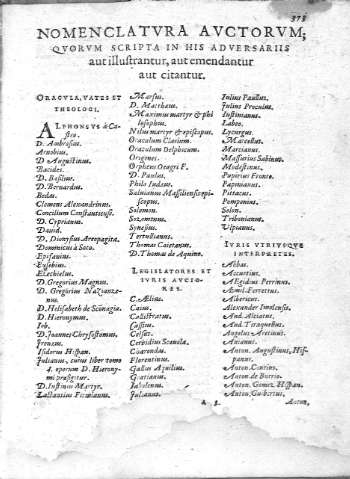 373
NOMENCLATVRA AVCTORVM;
QVORVM SCRIPTA IN HIS ADVERSARIIS
aut illustrantur, aut emendantur
aut citantur.
ORACVLA, VATES ET
THEOLOGI.
ALPHONSVS à Ca-
stro.
D. Ambrosius.
Arnobius.
D Augustinus.
Bacides.
D. Basilius.
D. Bernardus.
Bedas.
Clemens Alexandrinus.
Concilium Constantiense.
D. Cyprianus.
David.
D. Dionysius Areopagita.
Dominicus à Soto.
Epifanius.
Eusebius.
Ezechielus.
D. Gregorius Magnus.
D. Gregorius Nazianze-
nus.
D. Helisabeth de Sconaugia
D. Hieronymus.
Iob.
D. Joannes Chrysostomus.
Isidorus Hispan.
Iulianus, cuius liber tomo
4. operum D. Hierony-
mi
D. Iustinus Martyr.
Lactantius Firmianus.
Marsus.
D. Matthæus.
Maximus martyr & phi
losophus.
Nilus martyr & episcopus.
Oraculum Clarium.
Oraculum Delphicum.
Origenes.
Orpheus Oeagri F.
D. Paulus.
Philo Iudæus.
Salvianus Massiliensis epi-
scopus.
Solomon.
Sozomenus.
Synesius.
Tertullianus.
Thomas Caietanus.
D. Thomas de Aquino.
LEGISLATORES ET
IVRIS AVCTO-
RES.
C. Ælius.
Caius.
Callistratus.
Cassius.
Celsus.
Cervidius Scævola.
Charondas.
Florentinus.
Gallus Aquilius.
Gratianus.
Iabolenus.
Iulianus.
Iulius Paullus.
Iulius Proculus.
Iustinianus.
Labeo.
Lycurgus
Marcellus.
Martianus.
Massurius Sabinus.
Modestinus.
Papirius Fronto.
Papinianus.
Pittacus.
Pomponius.
Solon.
Tribonianus.
Vlpianus.
IVRIS VTRIVSQVE
INTERPRETES.
Abbas.
Accursius.
Ægidius Perrinus.
Æmil. Ferrettus.
Albericus.
Alexander Imolensis.
And. Alciatus.
And. Tiraquellus.
Angelus Aretinus.
Anianus.
Anton. Augustinus, His-
panus.
Anton. Contius.
Anton. de Butrio.
Anton. Gomez Hispan.
Anton. Guibertus.
Anton.